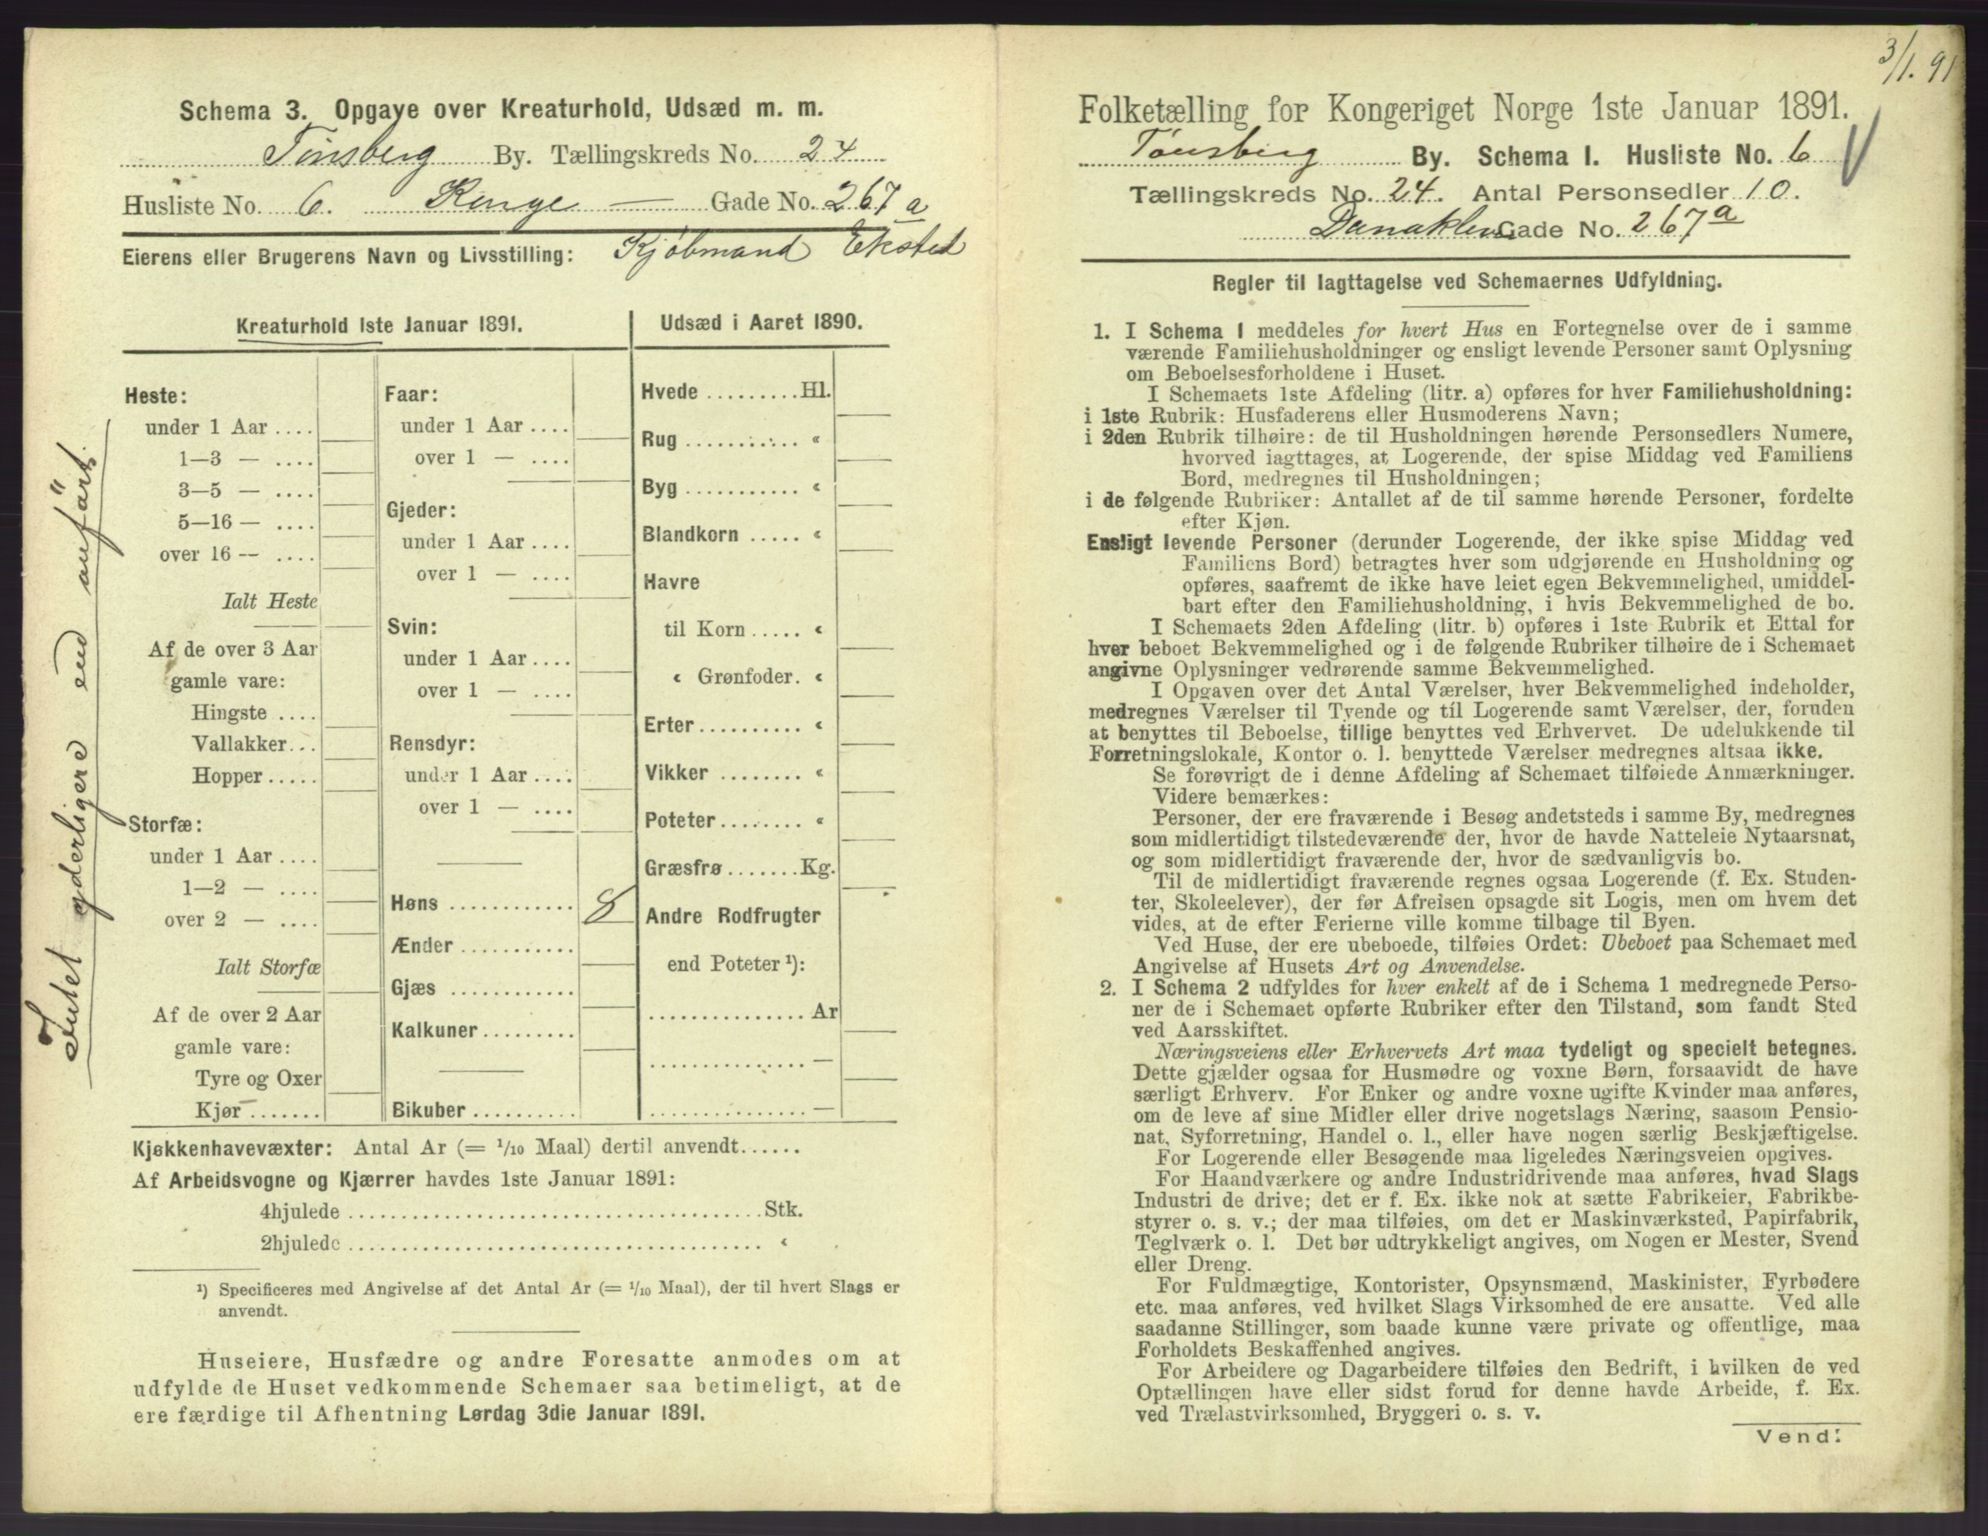 Schema 3. Opgave over Kreaturhold, Udsæd m. m.
Tönsberg By. Tællingskreds No. 24
Husliste No. 6. Konge — Gade No. 267a
Eierens eller Brugerens Navn og Livsstilling: Kjøbmand Eksted
Kreaturhold 1ste Januar 1891.
Heste:
under 1 Aar ....
1—3 — ....
3—5 — ....
5—16 — ....
over 16 — ....
Ialt Heste
Af de over 3 Aar
gamle vare:
Hingste ....
Vallakker...
Hopper.....
Storfæ:
under 1 Aar ....
1—2 — ....
over 2 — ....
Ialt Storfæ
Af de over 2 Aar
gamle vare:
Tyre og Oxer
Kjør.......
Faar:
under 1 Aar ....
over 1 — ....
Gjeder:
under 1 Aar....
over 1 — ....
Svin:
under 1 Aar....
over 1 — ....
Rensdyr:
under 1 Aar....
over 1 — ....
Høns ............ 8
Ænder ...........
Gjæs ............
Kalkuner.........
Bikuber ..........
Udsæd i Aaret 1890.
Hvede .........Hl.
Rug ........... «
Byg ........... «
Blandkorn ..... «
Havre
til Korn ..... «
« Grønfoder. «
Erter.......... «
Vikker ........ «
Poteter........ «
Græsfrø.......Kg.
Andre Rodfrugter
end Poteter ¹):
...............Ar
............... —
............... —
Intet yderligere end anført.
Kjøkkenhavevæxter: Antal Ar (= 1/10 Maal) dertil anvendt......
Af Arbeidsvogne og Kjærrer havdes 1ste Januar 1891:
4hjulede ........................................Stk.
2hjulede ........................................ «
¹) Specificeres med Angivelse af det Antal Ar (= 1/10 Maal), der til hvert Slags er
anvendt.
Huseiere, Husfædre og andre Foresatte anmodes om at
udfylde de Huset vedkommende Schemaer saa betimeligt, at de
ere færdige til Afhentning Lørdag 3die Januar 1891.
3/1. 91
Folketælling for Kongeriget Norge 1ste Januar 1891.
Tönsberg By. Schema I. Husliste No. 6
Tællingskreds No. 24. Antal Personsedler 10.
Danakleven Gade No. 267a
Regler til Iagttagelse ved Schemaernes Udfyldning.
1. I Schema 1 meddeles for hvert Hus en Fortegnelse over de i samme
værende Familiehusholdninger og ensligt levende Personer samt Oplysning
om Beboelsesforholdene i Huset.
I Schemaets 1ste Afdeling (litr. a) opføres for hver Familiehusholdning:
i 1ste Rubrik: Husfaderens eller Husmoderens Navn;
i 2den Rubrik tilhøire: de til Husholdningen hørende Personsedlers Numere,
hvorved iagttages, at Logerende, der spise Middag ved Familiens
Bord, medregnes til Husholdningen;
i de følgende Rubriker: Antallet af de til samme hørende Personer, fordelte
efter Kjøn.
Ensligt levende Personer (derunder Logerende, der ikke spise Middag ved
Familiens Bord) betragtes hver som udgjørende en Husholdning og
opføres, saafremt de ikke have leiet egen Bekvemmelighed, umiddel-
bart efter den Familiehusholdning, i hvis Bekvemmelighed de bo.
I Schemaets 2den Afdeling (litr. b) opføres i 1ste Rubrik et Ettal for
hver beboet Bekvemmelighed og i de følgende Rubriker tilhøire de i Schemaet
angivne Oplysninger vedrørende samme Bekvemmelighed.
I Opgaven over det Antal Værelser, hver Bekvemmelighed indeholder,
medregnes Værelser til Tyende og til Logerende samt Værelser, der, foruden
at benyttes til Beboelse, tillige benyttes ved Erhvervet. De udelukkende til
Forretningslokale, Kontor o. l. benyttede Værelser medregnes altsaa ikke.
Se forøvrigt de i denne Afdeling af Schemaet tilføiede Anmærkninger.
Videre bemærkes:
Personer, der ere fraværende i Besøg andetsteds i samme By, medregnes
som midlertidigt tilstedeværende der, hvor de havde Natteleie Nytaarsnat,
og som midlertidigt fraværende der, hvor de sædvanligvis bo.
Til de midlertidigt fraværende regnes ogsaa Logerende (f. Ex. Studen-
ter, Skoleelever), der før Afreisen opsagde sit Logis, men om hvem det
vides, at de efter Ferierne ville komme tilbage til Byen.
Ved Huse, der ere ubeboede, tilføies Ordet: Ubeboet paa Schemaet med
Angivelse af Husets Art og Anvendelse.
2. I Schema 2 udfyldes for hver enkelt af de i Schema 1 medregnede Perso-
ner de i Schemaet opførte Rubriker efter den Tilstand, som fandt Sted
ved Aarsskiftet.
Næringsveiens eller Erhvervets Art maa tydeligt og specielt betegnes.
Dette gjælder ogsaa for Husmødre og voxne Børn, forsaavidt de have
særligt Erhverv. For Enker og andre voxne ugifte Kvinder maa anføres,
om de leve af sine Midler eller drive nogetslags Næring, saasom Pensio-
nat, Syforretning, Handel o. l., eller have nogen særlig Beskjæftigelse.
For Logerende eller Besøgende maa ligeledes Næringsveien opgives.
For Haandværkere og andre Industridrivende maa anføres, hvad Slags
Industri de drive; det er f. Ex. ikke nok at sætte Fabrikeier, Fabrikbe-
styrer o. s. v.; der maa tilføies, om det er Maskinværksted, Papirfabrik,
Teglværk o. l. Det bør udtrykkeligt angives, om Nogen er Mester, Svend
eller Dreng.
For Fuldmægtige, Kontorister, Opsynsmænd, Maskinister, Fyrbødere
etc. maa anføres, ved hvilket Slags Virksomhed de ere ansatte. Ved alle
saadanne Stillinger, som baade kunne være private og offentlige, maa
Forholdets Beskaffenhed angives.
For Arbeidere og Dagarbeidere tilføies den Bedrift, i hvilken de ved
Optællingen have eller sidst forud for denne havde Arbeide, f. Ex.
ved Trælastvirksomhed, Bryggeri o. s. v.
Vend!